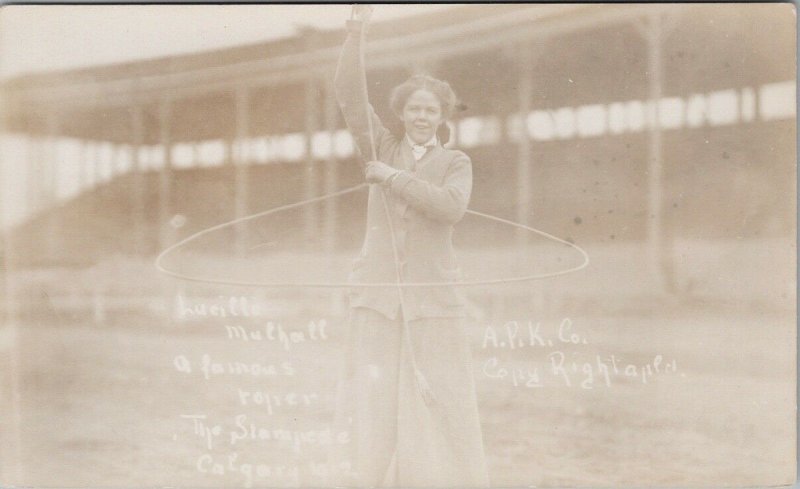 Lucille
Mulhall
A famous
roper
"The Stampede"
Calgary
A.P.K. Co.
Copy Right apld.